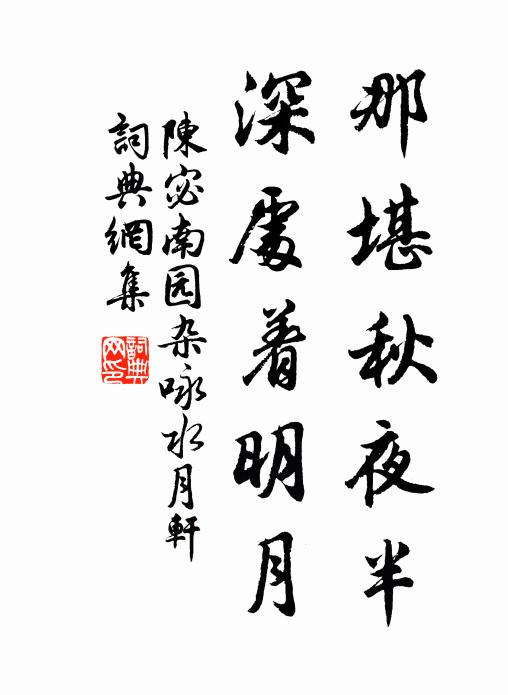 那堪秋夜半
深處着明月
陳宓南园杂咏水月軒
詞典網集
詞典网印